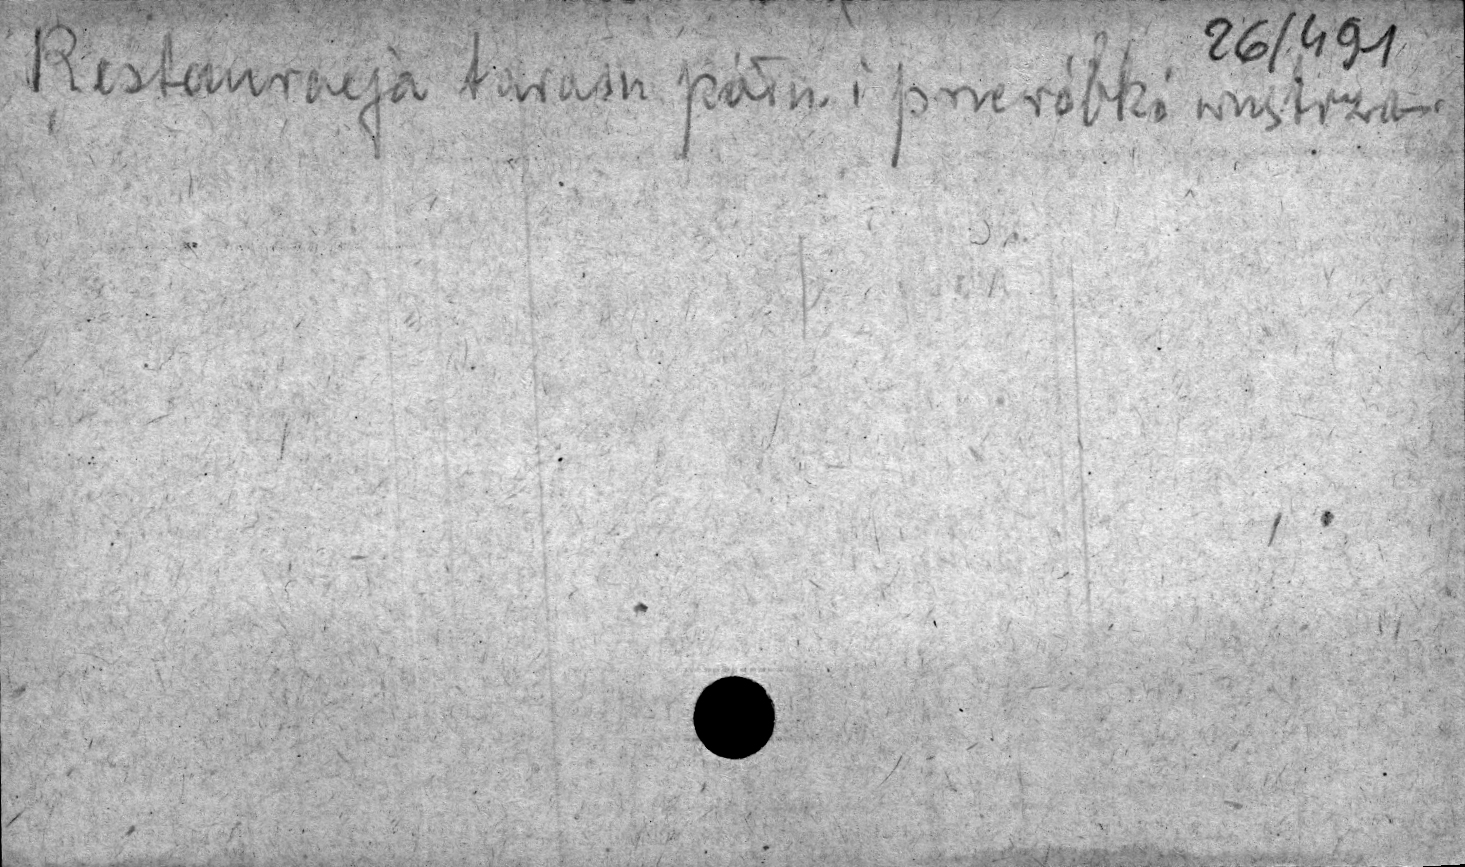 26/491
Restauracja tarasu półn. i przeróbki wnętrza